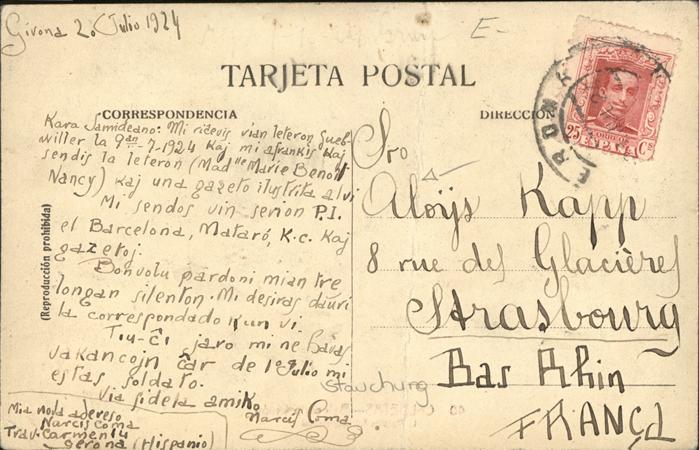 Girona 20 Julio 1924
E-
TARJETA POSTAL
CORRESPONDENCIA
DIRECCIÓN
Kara Samideano: Mi ricevis vian leteron Gueb-
willer la 9an-7-1924 kaj mi afrankis kaj
sendis la leteron (Mad lle Marie Benoit
Nancy) kaj una gazeto ilustrita al vi
Mi sendos vin serion P.I.
el Barcelona, Mataró, K.c. kaj
gazetoj.
Bonvolu pardoni mian tre
longan silenton. Mi desiras daŭri
la correspondado kun vi.
Tiu-ĉi jaro mi ne havas
vakancojn ĉar de 1º Julio mi
estas soldato.
Via fidela amiko
Narcís Coma
Mia nova adereso
Narcís Coma
Trav. Carmen 14
Gerona (Hispanio)
(Reproducción prohibida)
Sro
Aloijs Kapp
8 rue des Glacières
Strasbourg
Bas Rhin
FRANCJ
Stauchung
CORREOS
ESPAÑA
25 Cs